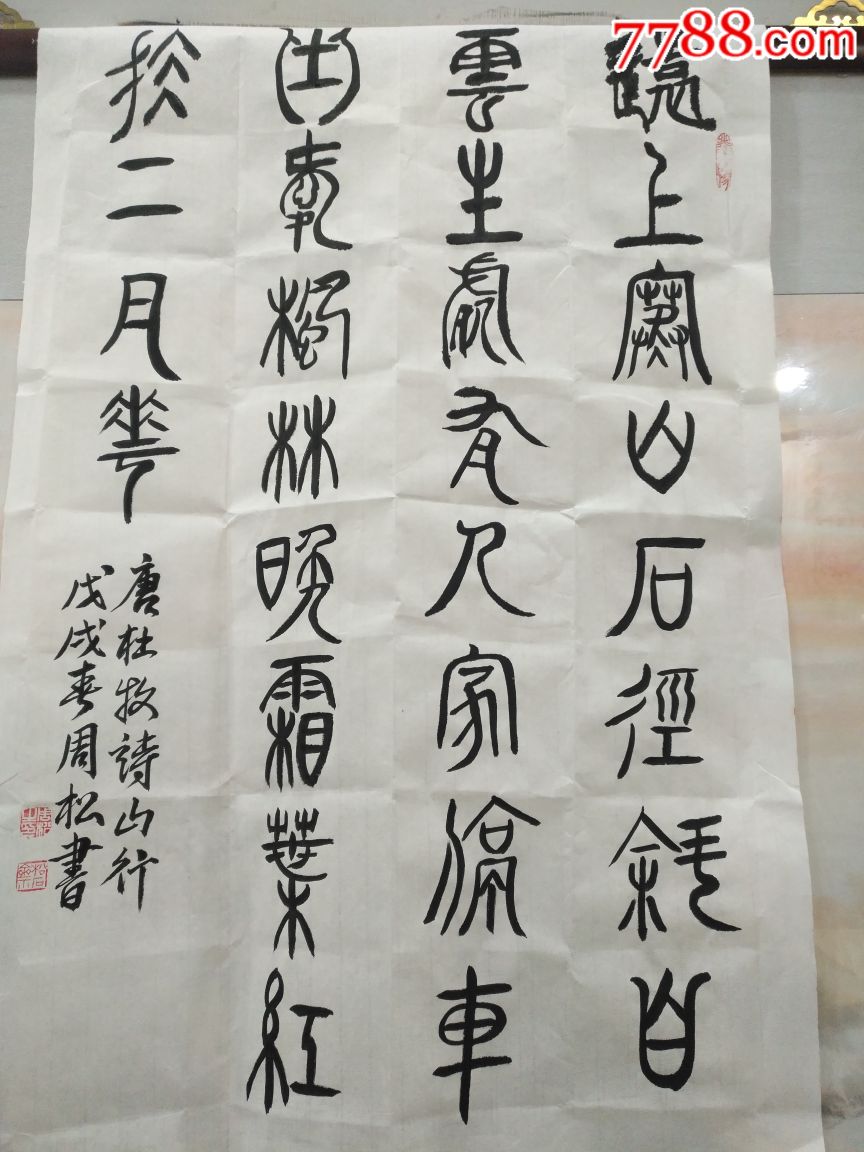 7788.com
遠上寒山石徑斜白
雲生處有人家停車
坐愛楓林晚霜葉紅
於二月華
唐杜牧詩山行
戊戌春周松書